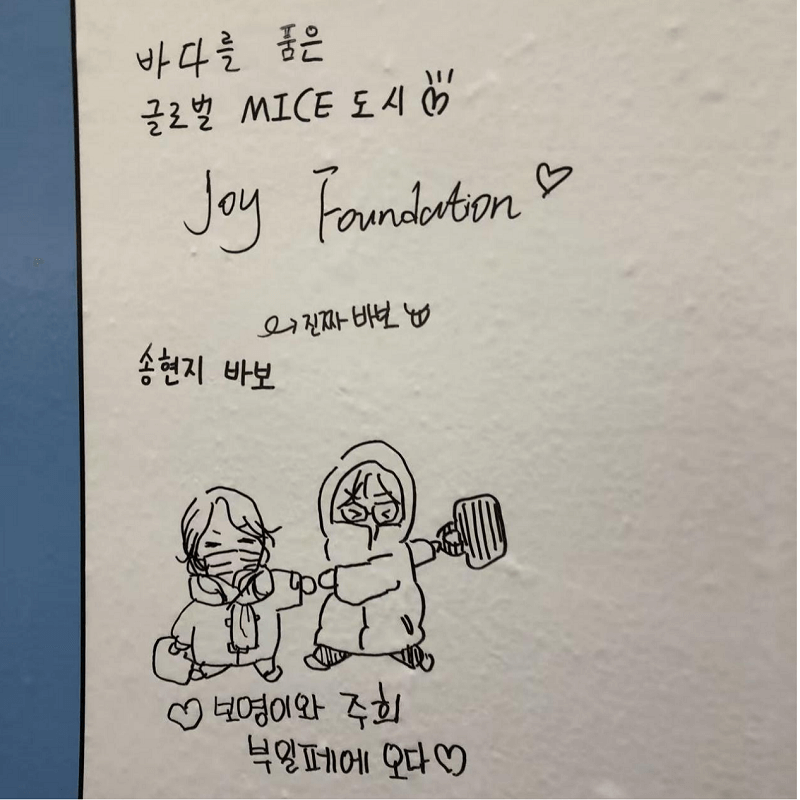 바다를 품은
글로벌 MICE 도시
Joy Foundation
진짜 바보
송현지 바보
보영이와 주희
부일페에 오다